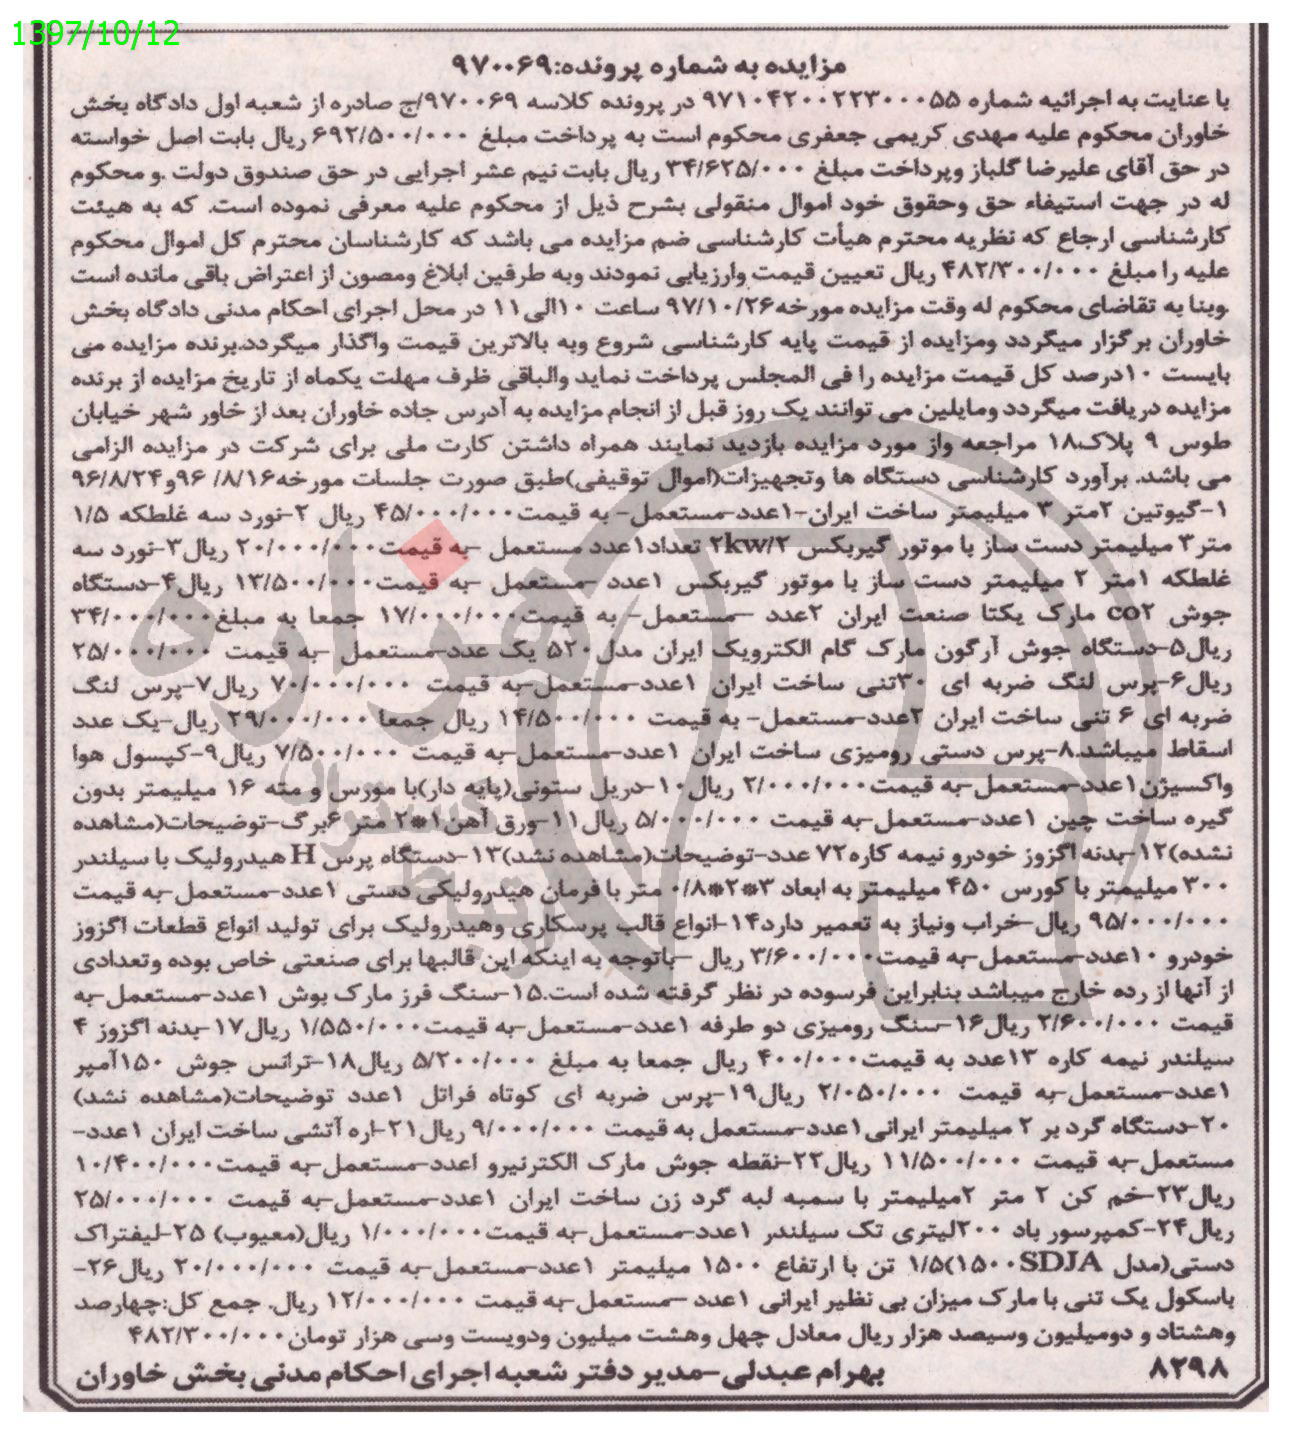 1397/10/12
مزایده به شماره پرونده:۹۷۰۰۶۹
با عنایت به اجرائیه شماره ۹۷۱۰۴۲۰۰۲۲۳۰۰۰۵۵ در پرونده کلاسه ۹۷۰۰۶۹/ج صادره از شعبه اول دادگاه بخش
خاوران محکوم علیه مهدی کریمی جعفری محکوم است به پرداخت مبلغ ۶۹۲/۵۰۰/۰۰۰ ریال بابت اصل خواسته
در حق آقای علیرضا گلباز وپرداخت مبلغ ۳۴/۶۲۵/۰۰۰ ریال بابت نیم عشر اجرایی در حق صندوق دولت .و محکوم
له در جهت استیفاء حق وحقوق خود اموال منقولی بشرح ذیل از محکوم علیه معرفی نموده است. که به هیئت
کارشناسی ارجاع که نظریه محترم هیأت کارشناسی ضم مزایده می باشد که کارشناسان محترم کل اموال محکوم
علیه را مبلغ ۴۸۲/۳۰۰/۰۰۰ ریال تعیین قیمت وارزیابی نمودند وبه طرفین ابلاغ ومصون از اعتراض باقی مانده است
.وبنا به تقاضای محکوم له وقت مزایده مورخه۹۷/۱۰/۲۶ ساعت ۱۰الی۱۱ در محل اجرای احکام مدنی دادگاه بخش
خاوران برگزار میگردد ومزایده از قیمت پایه کارشناسی شروع وبه بالاترین قیمت واگذار میگردد.برنده مزایده می
بایست ۱۰درصد کل قیمت مزایده را فی المجلس پرداخت نماید والباقی ظرف مهلت یکماه از تاریخ مزایده از برنده
مزایده دریافت میگردد ومایلین می توانند یک روز قبل از انجام مزایده به آدرس جاده خاوران بعد از خاور شهر خیابان
طوس ۹ پلاک۱۸ مراجعه واز مورد مزایده بازدید نمایند همراه داشتن کارت ملی برای شرکت در مزایده الزامی
می باشد. برآورد کارشناسی دستگاه ها وتجهیزات(اموال توقیفی)طبق صورت جلسات مورخه۸/۱۶/ ۹۶و۹۶/۸/۲۴
۱-گیوتین ۲متر ۳ میلیمتر ساخت ایران-۱عدد-مستعمل- به قیمت۴۵/۰۰۰/۰۰۰ ریال ۲-نورد سه غلطکه ۱/۵
متر۳ میلیمتر دست ساز با موتور گیربکس ۲kw/۲ تعداد۱عدد مستعمل -به قیمت۲۰/۰۰۰/۰۰۰ ریال۳-نورد سه
غلطکه ۱متر ۲ میلیمتر دست ساز با موتور گیربکس ۱عدد -مستعمل -به قیمت۱۳/۵۰۰/۰۰۰ ریال۴-دستگاه
جوش co۲ مارک یکتا صنعت ایران ۲عدد -مستعمل- به قیمت۱۷/۰۰۰/۰۰۰ جمعا به مبلغ۳۴/۰۰۰/۰۰۰
ریال۵-دستگاه جوش آرگون مارک گام الکترویک ایران مدل۵۲۰ یک عدد-مستعمل -به قیمت ۲۵/۰۰۰/۰۰۰
ریال۶-پرس لنگ ضربه ای ۳۰تنی ساخت ایران ۱عدد-مستعمل-به قیمت ۷۰/۰۰۰/۰۰۰ ریال۷-پرس لنگ
ضربه ای ۶ تنی ساخت ایران ۲عدد-مستعمل- به قیمت ۱۴/۵۰۰/۰۰۰ ریال جمعا ۲۹/۰۰۰/۰۰۰ ریال-یک عدد
اسقاط میباشد.۸-پرس دستی رومیزی ساخت ایران ۱عدد-مستعمل-به قیمت ۷/۵۰۰/۰۰۰ ریال۹-کپسول هوا
واکسیژن۱عدد-مستعمل-به قیمت۲/۰۰۰/۰۰۰ ریال۱۰-دریل ستونی(پایه دار)با مورس و مته ۱۶ میلیمتر بدون
گیره ساخت چین ۱عدد-مستعمل-به قیمت ۵/۰۰۰/۰۰۰ ریال۱۱-ورق آهن۱*۲ متر ۶برگ-توضیحات(مشاهده
نشده)۱۲-بدنه اگزوز خودرو نیمه کاره۷۲ عدد-توضیحات(مشاهده نشد)۱۳-دستگاه پرس H هیدرولیک با سیلندر
۳۰۰ میلیمتر با کورس ۴۵۰ میلیمتر به ابعاد ۳*۲*۰/۸ متر با فرمان هیدرولیکی دستی ۱عدد-مستعمل-به قیمت
۹۵/۰۰۰/۰۰۰ ریال-خراب ونیاز به تعمیر دارد۱۴-انواع قالب پرسکاری وهیدرولیک برای تولید انواع قطعات اگزوز
خودرو ۱۰عدد-مستعمل-به قیمت۳/۶۰۰/۰۰۰ ریال -باتوجه به اینکه این قالبها برای صنعتی خاص بوده وتعدادی
از آنها از رده خارج میباشد بنابراین فرسوده در نظر گرفته شده است.۱۵-سنگ فرز مارک بوش ۱عدد-مستعمل-به
قیمت ۲/۶۰۰/۰۰۰ ریال۱۶-سنگ رومیزی دو طرفه ۱عدد-مستعمل-به قیمت۱/۵۵۰/۰۰۰ ریال۱۷-بدنه اگزوز ۴
سیلندر نیمه کاره ۱۳عدد به قیمت۴۰۰/۰۰۰ ریال جمعا به مبلغ ۵/۲۰۰/۰۰۰ ریال۱۸-ترانس جوش ۱۵۰آمپر
۱عدد-مستعمل-به قیمت ۲/۰۵۰/۰۰۰ ریال۱۹-پرس ضربه ای کوتاه فراتل ۱عدد توضیحات(مشاهده نشد)
۲۰-دستگاه گرد بر ۲ میلیمتر ایرانی۱عدد-مستعمل به قیمت ۹/۰۰۰/۰۰۰ ریال۲۱-اره آتشی ساخت ایران ۱عدد-
مستعمل-به قیمت ۱۱/۵۰۰/۰۰۰ ریال۲۲-نقطه جوش مارک الکترنیرو ۱عدد-مستعمل-به قیمت۱۰/۴۰۰/۰۰۰
ریال۲۳-خم کن ۲ متر ۲میلیمتر با سمبه لبه گرد زن ساخت ایران ۱عدد-مستعمل-به قیمت ۲۵/۰۰۰/۰۰۰
ریال۲۴-کمپرسور باد ۲۰۰لیتری تک سیلندر ۱عدد-مستعمل-به قیمت۱/۰۰۰/۰۰۰ ریال(معیوب) ۲۵-لیفتراک
دستی(مدل ۱۵۰۰SDJA)۱/۵ تن با ارتفاع ۱۵۰۰ میلیمتر ۱عدد-مستعمل-به قیمت ۲۰/۰۰۰/۰۰۰ ریال۲۶-
باسکول یک تنی با مارک میزان بی نظیر ایرانی ۱عدد -مستعمل-به قیمت ۱۲/۰۰۰/۰۰۰ ریال. جمع کل:چهارصد
وهشتاد و دومیلیون وسیصد هزار ریال معادل چهل وهشت میلیون ودویست وسی هزار تومان۴۸۲/۳۰۰/۰۰۰
۸۲۹۸ بهرام عبدلی-مدیر دفتر شعبه اجرای احکام مدنی بخش خاوران